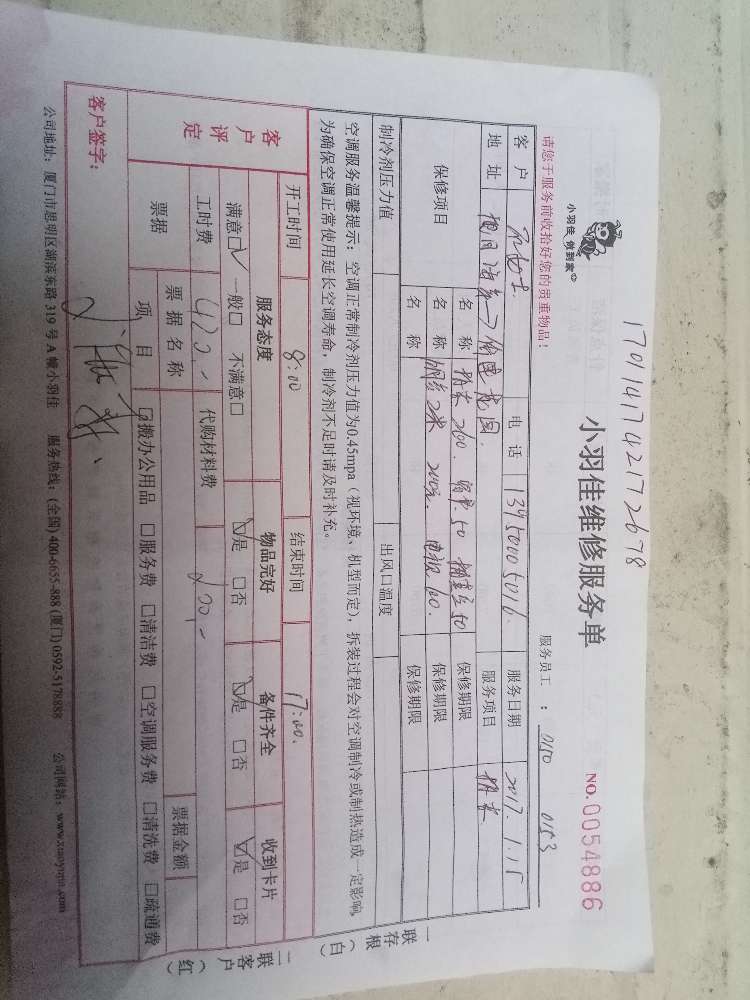 1701141742172678
小羽佳 做到家
小羽佳维修服务单
NO.0054886
请您于服务前收拾好您的贵重物品！
服务员工 ： 0150 0153
客户 女士 电话 13950005016 服务日期 2017.1.15
地址 服务项目 拆装
保修项目 名称 拆装 260. 50 50 保修期限
名称 2米 200元. 100. 保修期限
名称 保修期限
制冷剂压力值 出风口温度
空调服务温馨提示：空调正常制冷剂压力值为0.45mpa（视环境、机型而定），拆装过程会对空调制冷或制热造成一定影响，
为确保空调正常使用延长空调寿命，制冷剂不足时请及时补充。
开工时间 8:00 结束时间 17:00.
客户评定 服务态度 物品完好 备件齐全 收到卡片
满意☑ 一般□ 不满意□ ☑是 □否 ☑是 □否 ☑是 □否
工时费 420.- 代购材料费 200.-
票据 票据名称 票据金额
项目 ☑搬办公用品 □服务费 □清洁费 □空调服务费 □清洗费 □疏通费
客户签字：
公司地址：厦门市思明区湖滨东路319号A幢小羽佳 服务热线：(全国)400-6655-888 (厦门)0592-5178888 公司网站：www.xiaoyujia.com
一联存根（白）
二联客户（红）